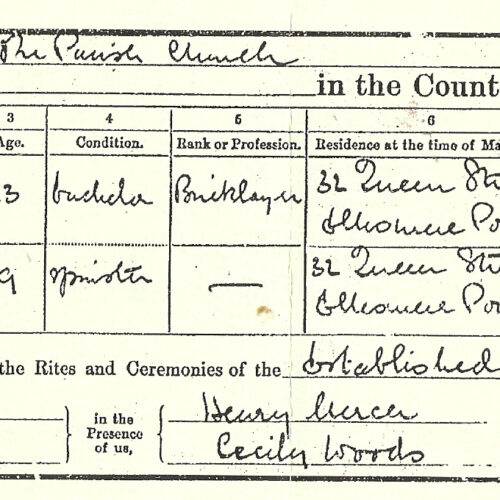 The Parish Church
in the Count
3 4 5 6
Age. Condition. Rank or Profession. Residence at the time of Ma
3 bachelor Bricklayer 32 Queen Str
Ellesmere Po
9 spinster — 32 Queen Str
Ellesmere Po
the Rites and Ceremonies of the Established
in the
Presence
of us,
Henry Mercer
Cecily Woods